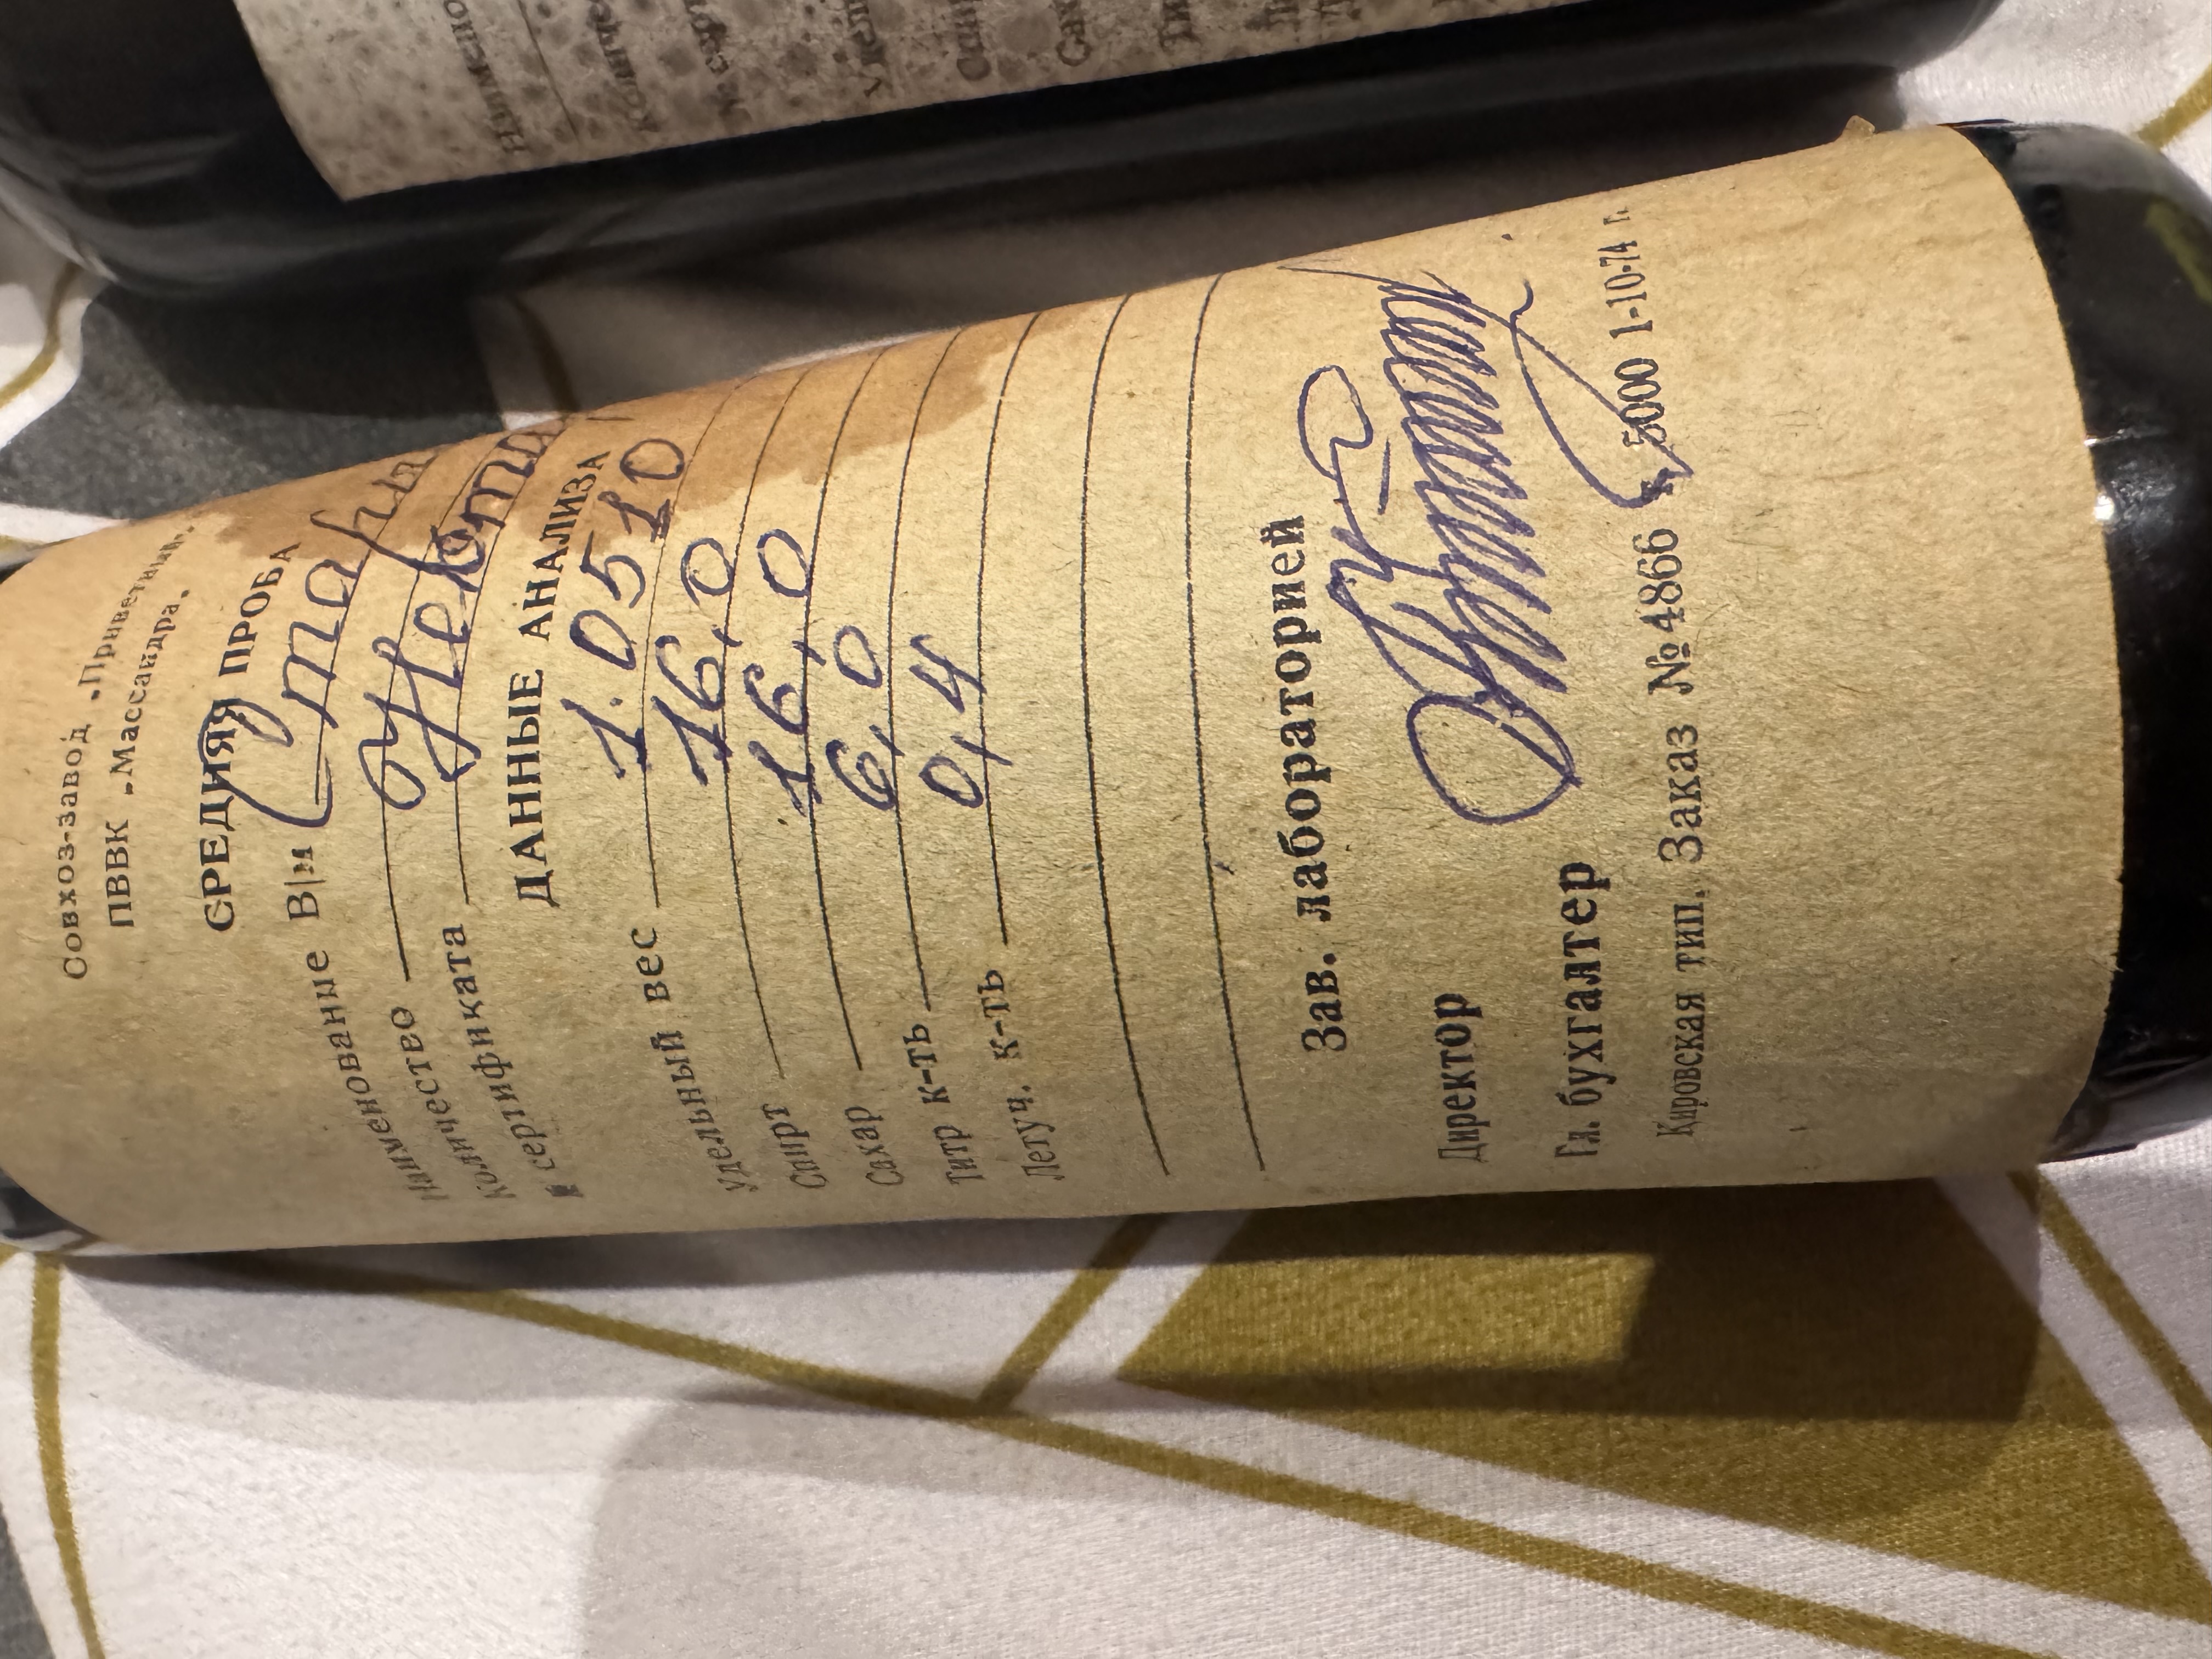 Совхоз-завод „Приветный„
ПВВК „Массандра„
СРЕДНЯЯ ПРОБА
Наименование В|м
Количество
№ сертификата
ДАННЫЕ АНАЛИЗА
Удельный вес 1.0510
Спирт 16,0
Сахар 16,0
Титр к-ть 6,0
Летуч. к-ть 0,4
Зав. лабораторией
Директор
Гл. бухгалтер
Кировская тип. Заказ № 4866 т. 5000 1-10-74 г.